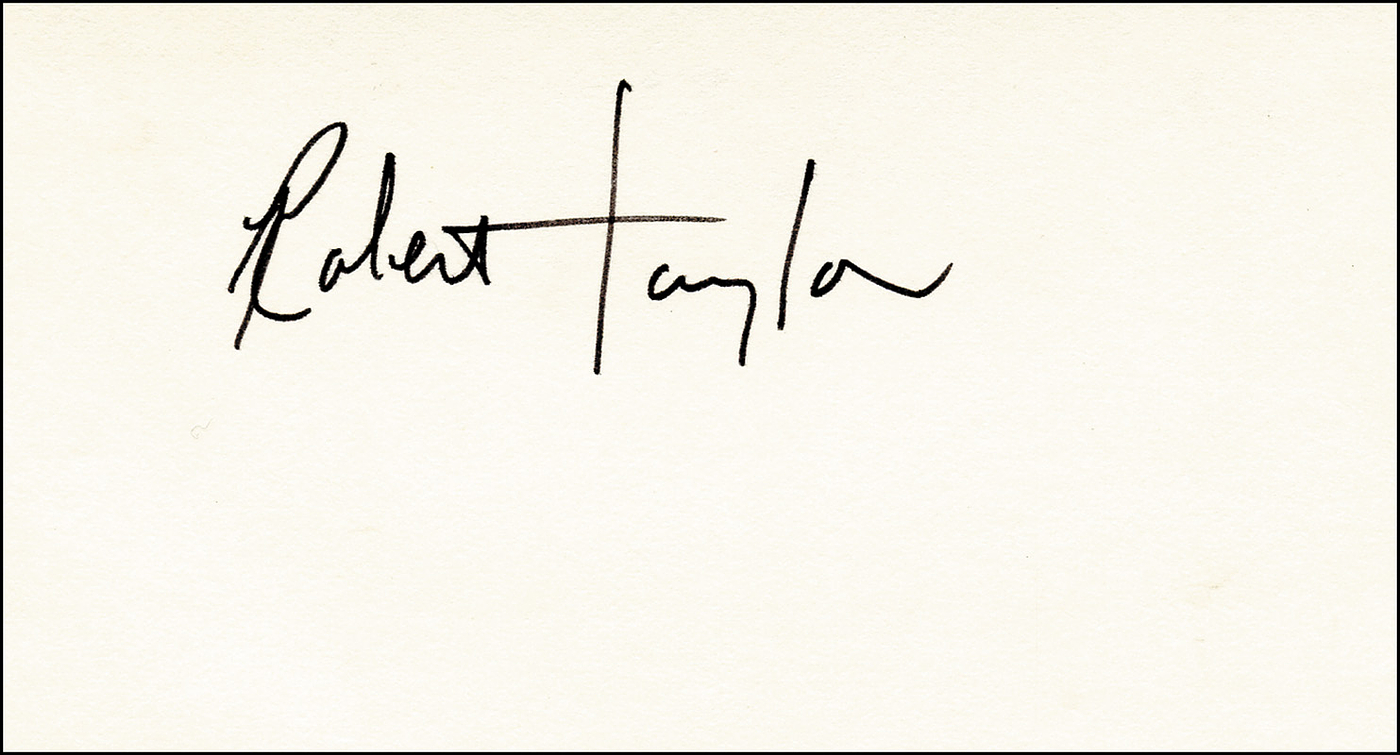 Robert Taylor